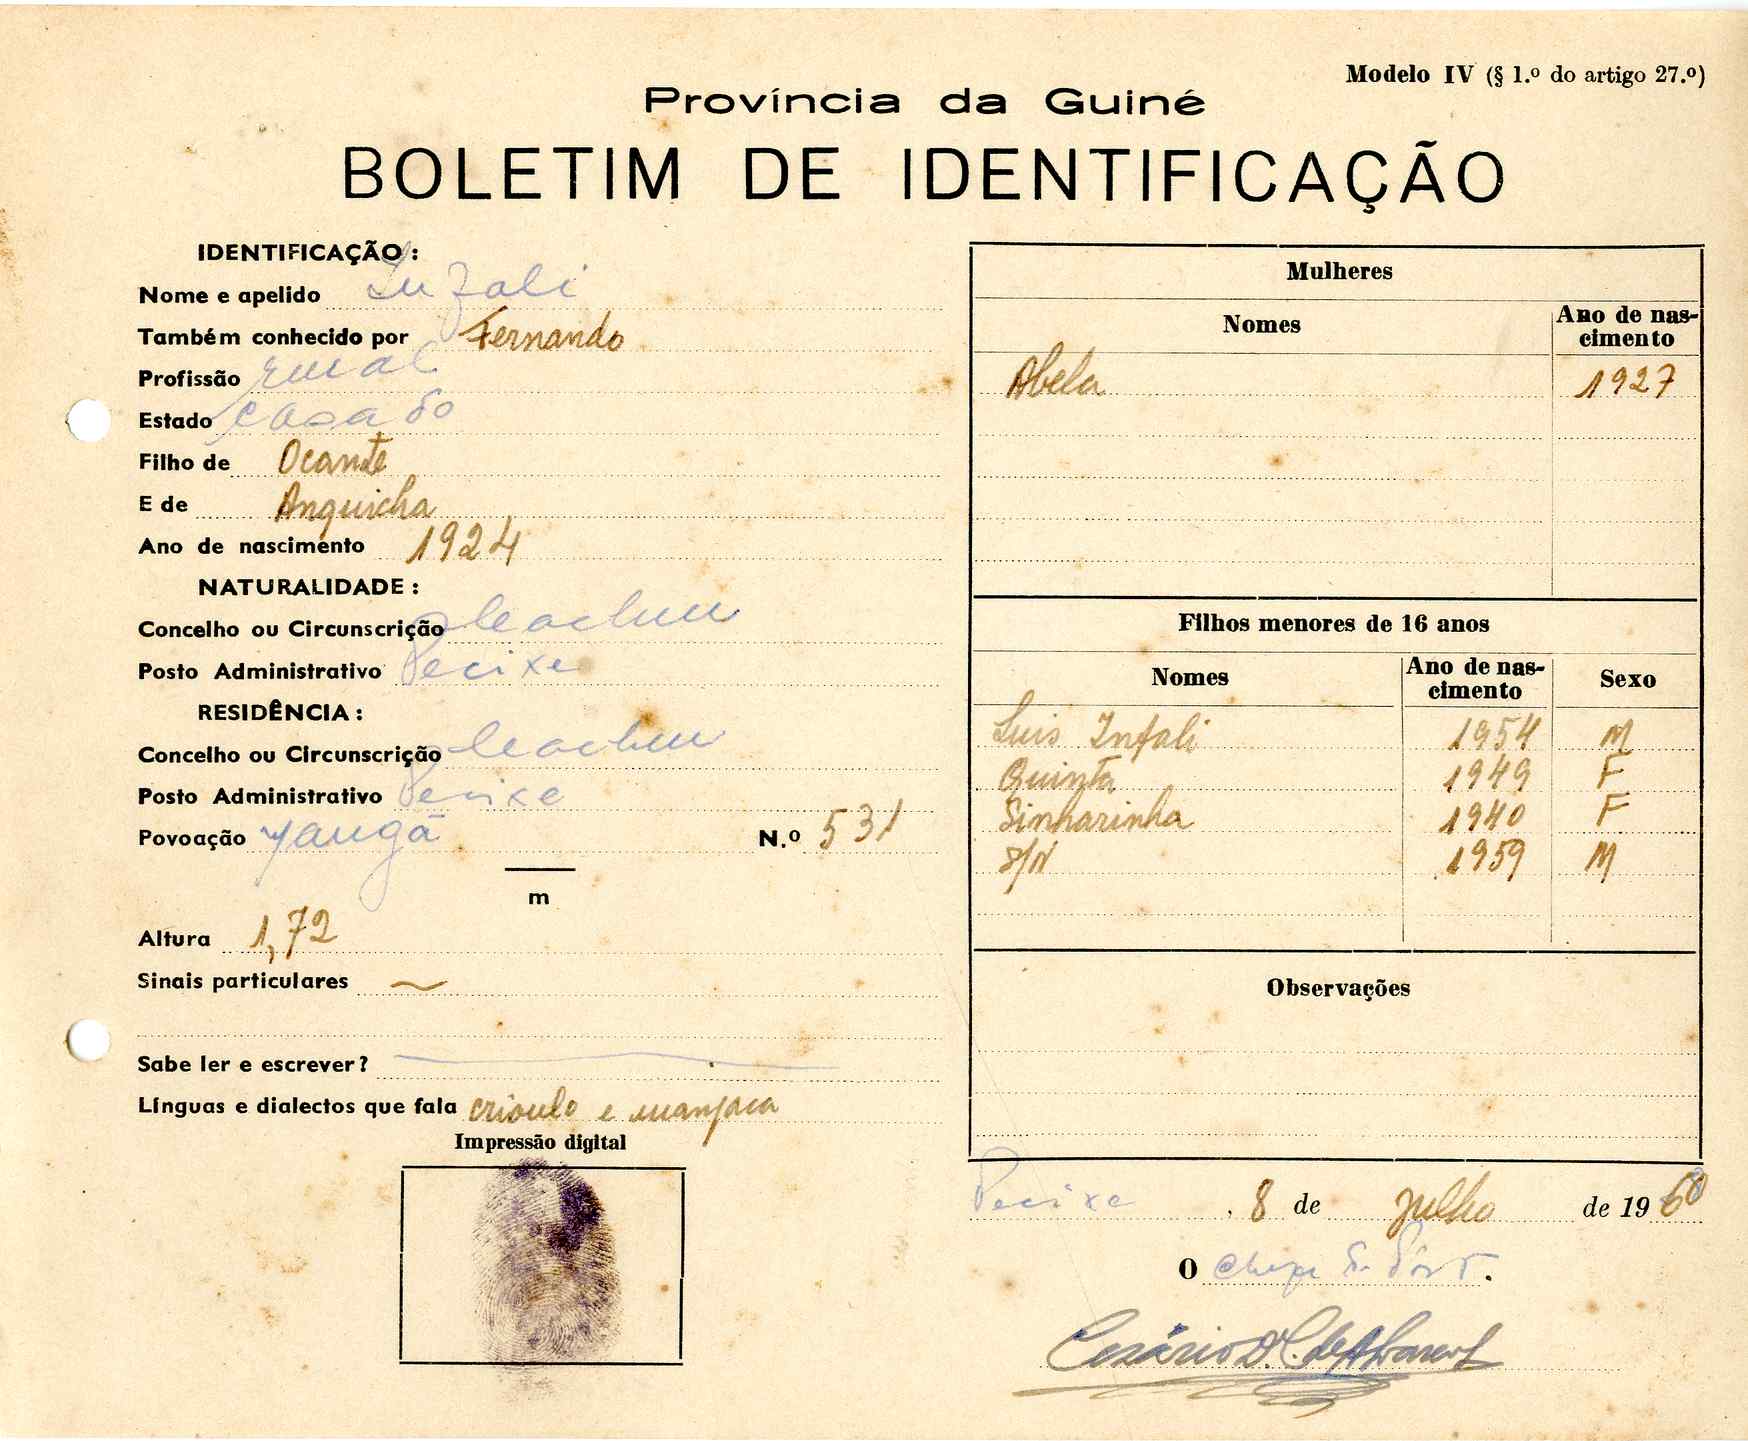 Modelo IV (§ 1.º do artigo 27.º)
Província da Guiné
BOLETIM DE IDENTIFICAÇÃO
IDENTIFICAÇÃO:
Nome e apelido Infali
Também conhecido por Fernando
Profissão rural
Estado casado
Filho de Ocante
E de Anquicha
Ano de nascimento 1924
NATURALIDADE:
Concelho ou Circunscrição
Posto Administrativo Pecixe
RESIDÊNCIA:
Concelho ou Circunscrição
Posto Administrativo Pecixe
Povoação N.º 531
m
Altura 1,72
Sinais particulares
Sabe ler e escrever?
Línguas e dialectos que fala crioulo e manjaca
Impressão digital
Mulheres
Nomes Ano de nas-
cimento
Abela 1927
Filhos menores de 16 anos
Nomes Ano de nas-
cimento Sexo
Luis Infali 1954 M
Quinta 1949 F
Sinharinha 1940 F
S/N 1959 M
Observações
Pecixe, 8 de Julho de 1960
O Chefe de Posto.
Cesário